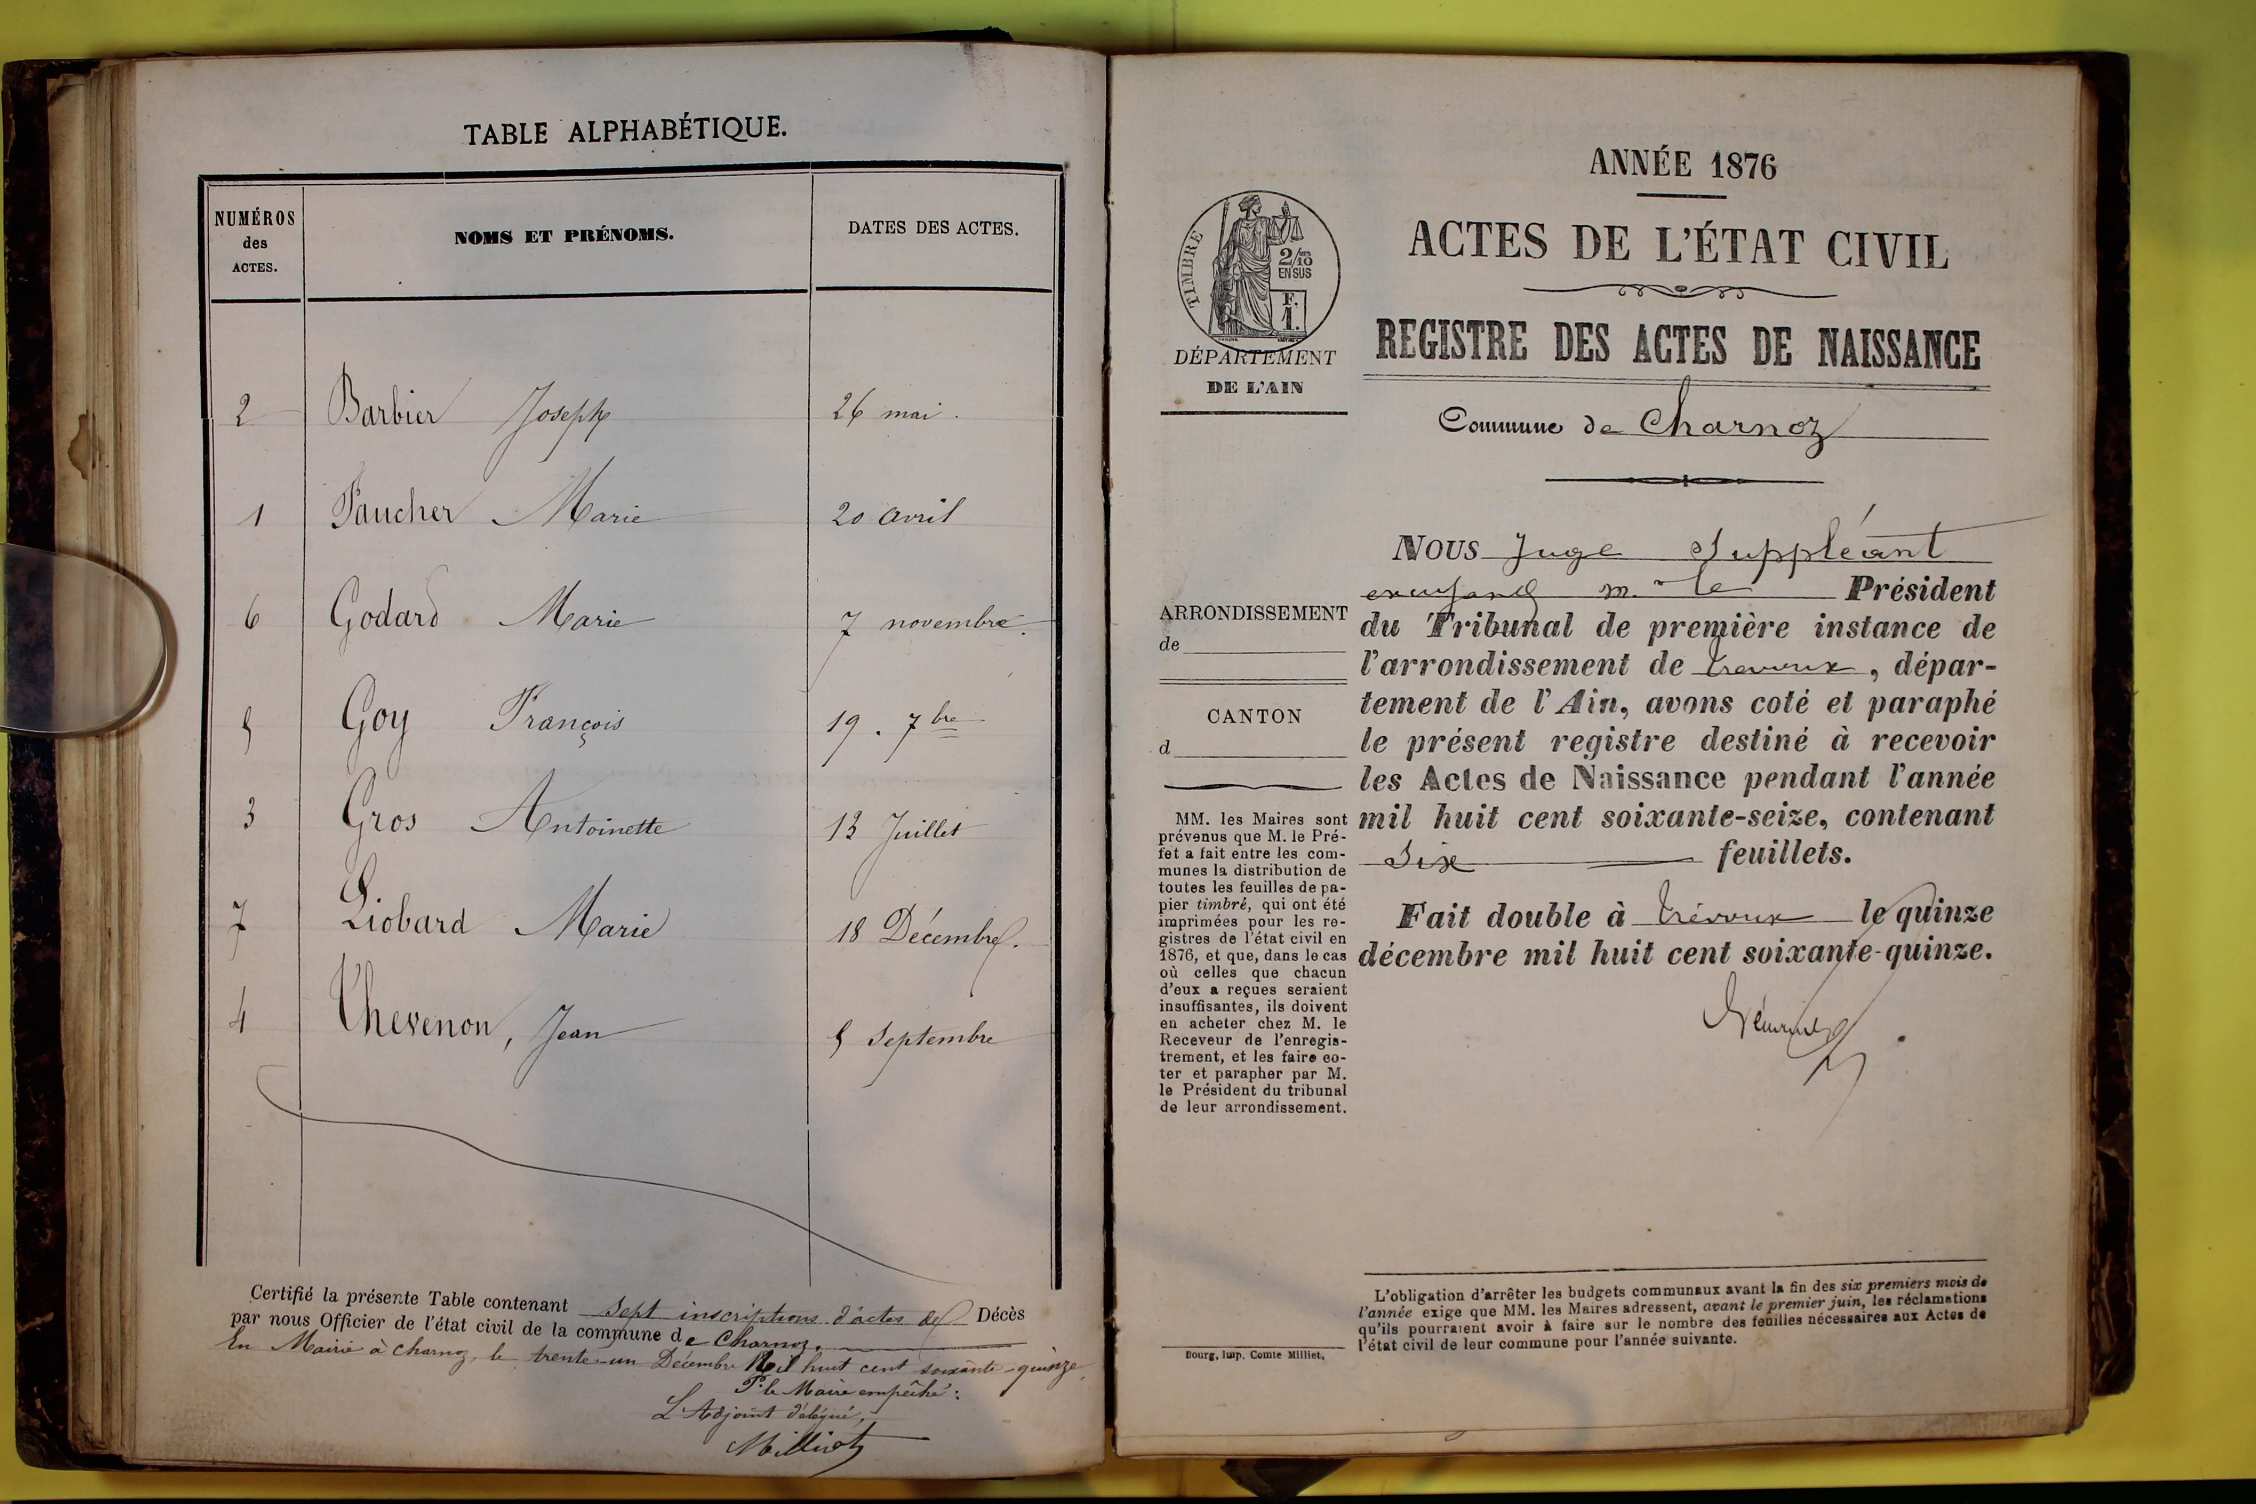 TABLE ALPHABÉTIQUE.
NUMÉROS des ACTES. NOMS ET PRÉNOMS. DATES DES ACTES.
2 Barbier Joseph 26 mai.
1 Faucher Marie 20 avril
6 Godard Marie 7 novembre.
5 Goy François 19. 7bre
3 Gros Antoinette 13 Juillet
7 Liobard Marie 18 Décembre.
4 Thevenon, Jean 5 Septembre
Certifié la présente Table contenant sept inscriptions d'actes de Décès
par nous Officier de l'état civil de la commune de Charnoz.
En Mairie à Charnoz, le trente-un Décembre Mil huit cent soixante-quinze.
Pr le Maire empêché:
L'Adjoint délégué,
Milliat
ANNÉE 1876
ACTES DE L'ÉTAT CIVIL
REGISTRE DES ACTES DE NAISSANCE
TIMBRE
2/10
EN SUS
F.
1.
DÉPARTEMENT
DE L'AIN
Commune de Charnoz
ARRONDISSEMENT
de
CANTON
d
MM. les Maires sont
prévenus que M. le Pré-
fet a fait entre les com-
munes la distribution de
toutes les feuilles de pa-
pier timbré, qui ont été
imprimées pour les re-
gistres de l'état civil en
1876, et que, dans le cas
où celles que chacun
d'eux a reçues seraient
insuffisantes, ils doivent
en acheter chez M. le
Receveur de l'enregis-
trement, et les faire co-
ter et parapher par M.
le Président du tribunal
de leur arrondissement.
Bourg, Imp. Comte Milliet,
NOUS Juge Suppléant
m. le Président
du Tribunal de première instance de
l'arrondissement de Trévoux, dépar-
tement de l'Ain, avons coté et paraphé
le présent registre destiné à recevoir
les Actes de Naissance pendant l'année
mil huit cent soixante-seize, contenant
Six feuillets.
Fait double à Trévoux le quinze
décembre mil huit cent soixante-quinze.
L'obligation d'arrêter les budgets communaux avant la fin des six premiers mois de
l'année exige que MM. les Maires adressent, avant le premier juin, les réclamations
qu'ils pourraient avoir à faire sur le nombre des feuilles nécessaires aux Actes de
l'état civil de leur commune pour l'année suivante.